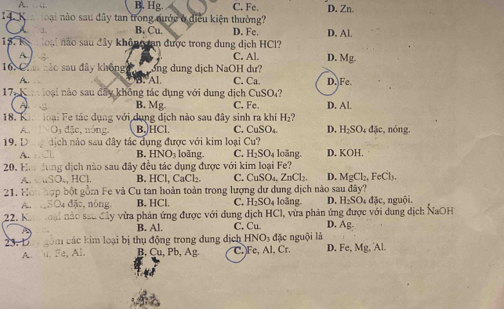 B. Hg. C. Fe. D. Zn.
14. loại nào sau đây tan trong nước ở điều kiện thường?
B. Cu. D. Fe. D. Al.
15. loại nào sau đây không tan được trong dung dịch HCl?
C. Al. D. Mg.
16. nào sau đây không trong dung dịch NaOH dư?
A. B. Al. C. Ca. D. Fe.
17. loại nào sau đây không tác dụng với dung dịch CuSO₄?
A. B. Mg. C. Fe. D. Al.
18. loại Fe tác dụng với dung dịch nào sau đây sinh ra khí H₂?
A. đặc, nóng. B. HCl. C. CuSO₄. D. H₂SO₄ đặc, nóng.
19. dịch nào sau đây tác dụng được với kim loại Cu?
A. B. HNO₃ loãng. C. H₂SO₄ loãng. D. KOH.
20. dung dịch nào sau đây đều tác dụng được với kim loại Fe?
A. CuSO₄, HCl. B. HCl, CaCl₂. C. CuSO₄, ZnCl₂. D. MgCl₂, FeCl₃.
21. hợp bột gồm Fe và Cu tan hoàn toàn trong lượng dư dung dịch nào sau đây?
A. đặc, nóng. B. HCl. C. H₂SO₄ loãng. D. H₂SO₄ đặc, nguội.
22. loại nào sau đây vừa phản ứng được với dung dịch HCl, vừa phản ứng được với dung dịch NaOH
B. Al. C. Cu. D. Ag.
23. gồm các kim loại bị thụ động trong dung dịch HNO₃ đặc nguội là
A. Fe, Al. B. Cu, Pb, Ag. C. Fe, Al, Cr. D. Fe, Mg, Al.